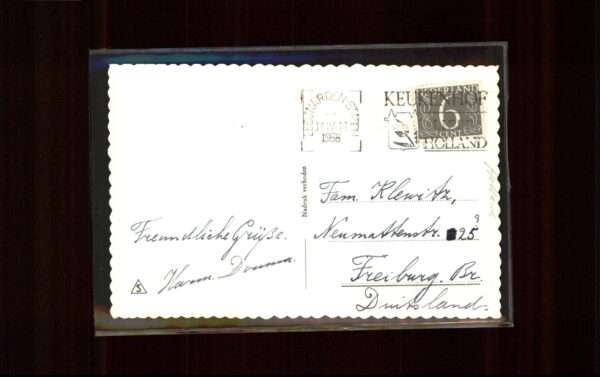 LEEUWARDEN-STATION
1958
KEUKENHOF
HOLLAND
NEDERLAND
6
CENT
Nadruk verboden
Fam. Klewitz,
Neumattenstr. 25 ?
Freiburg. Br.
Duitsland.
Freundliche Grüße.
Harm. Douma.
5